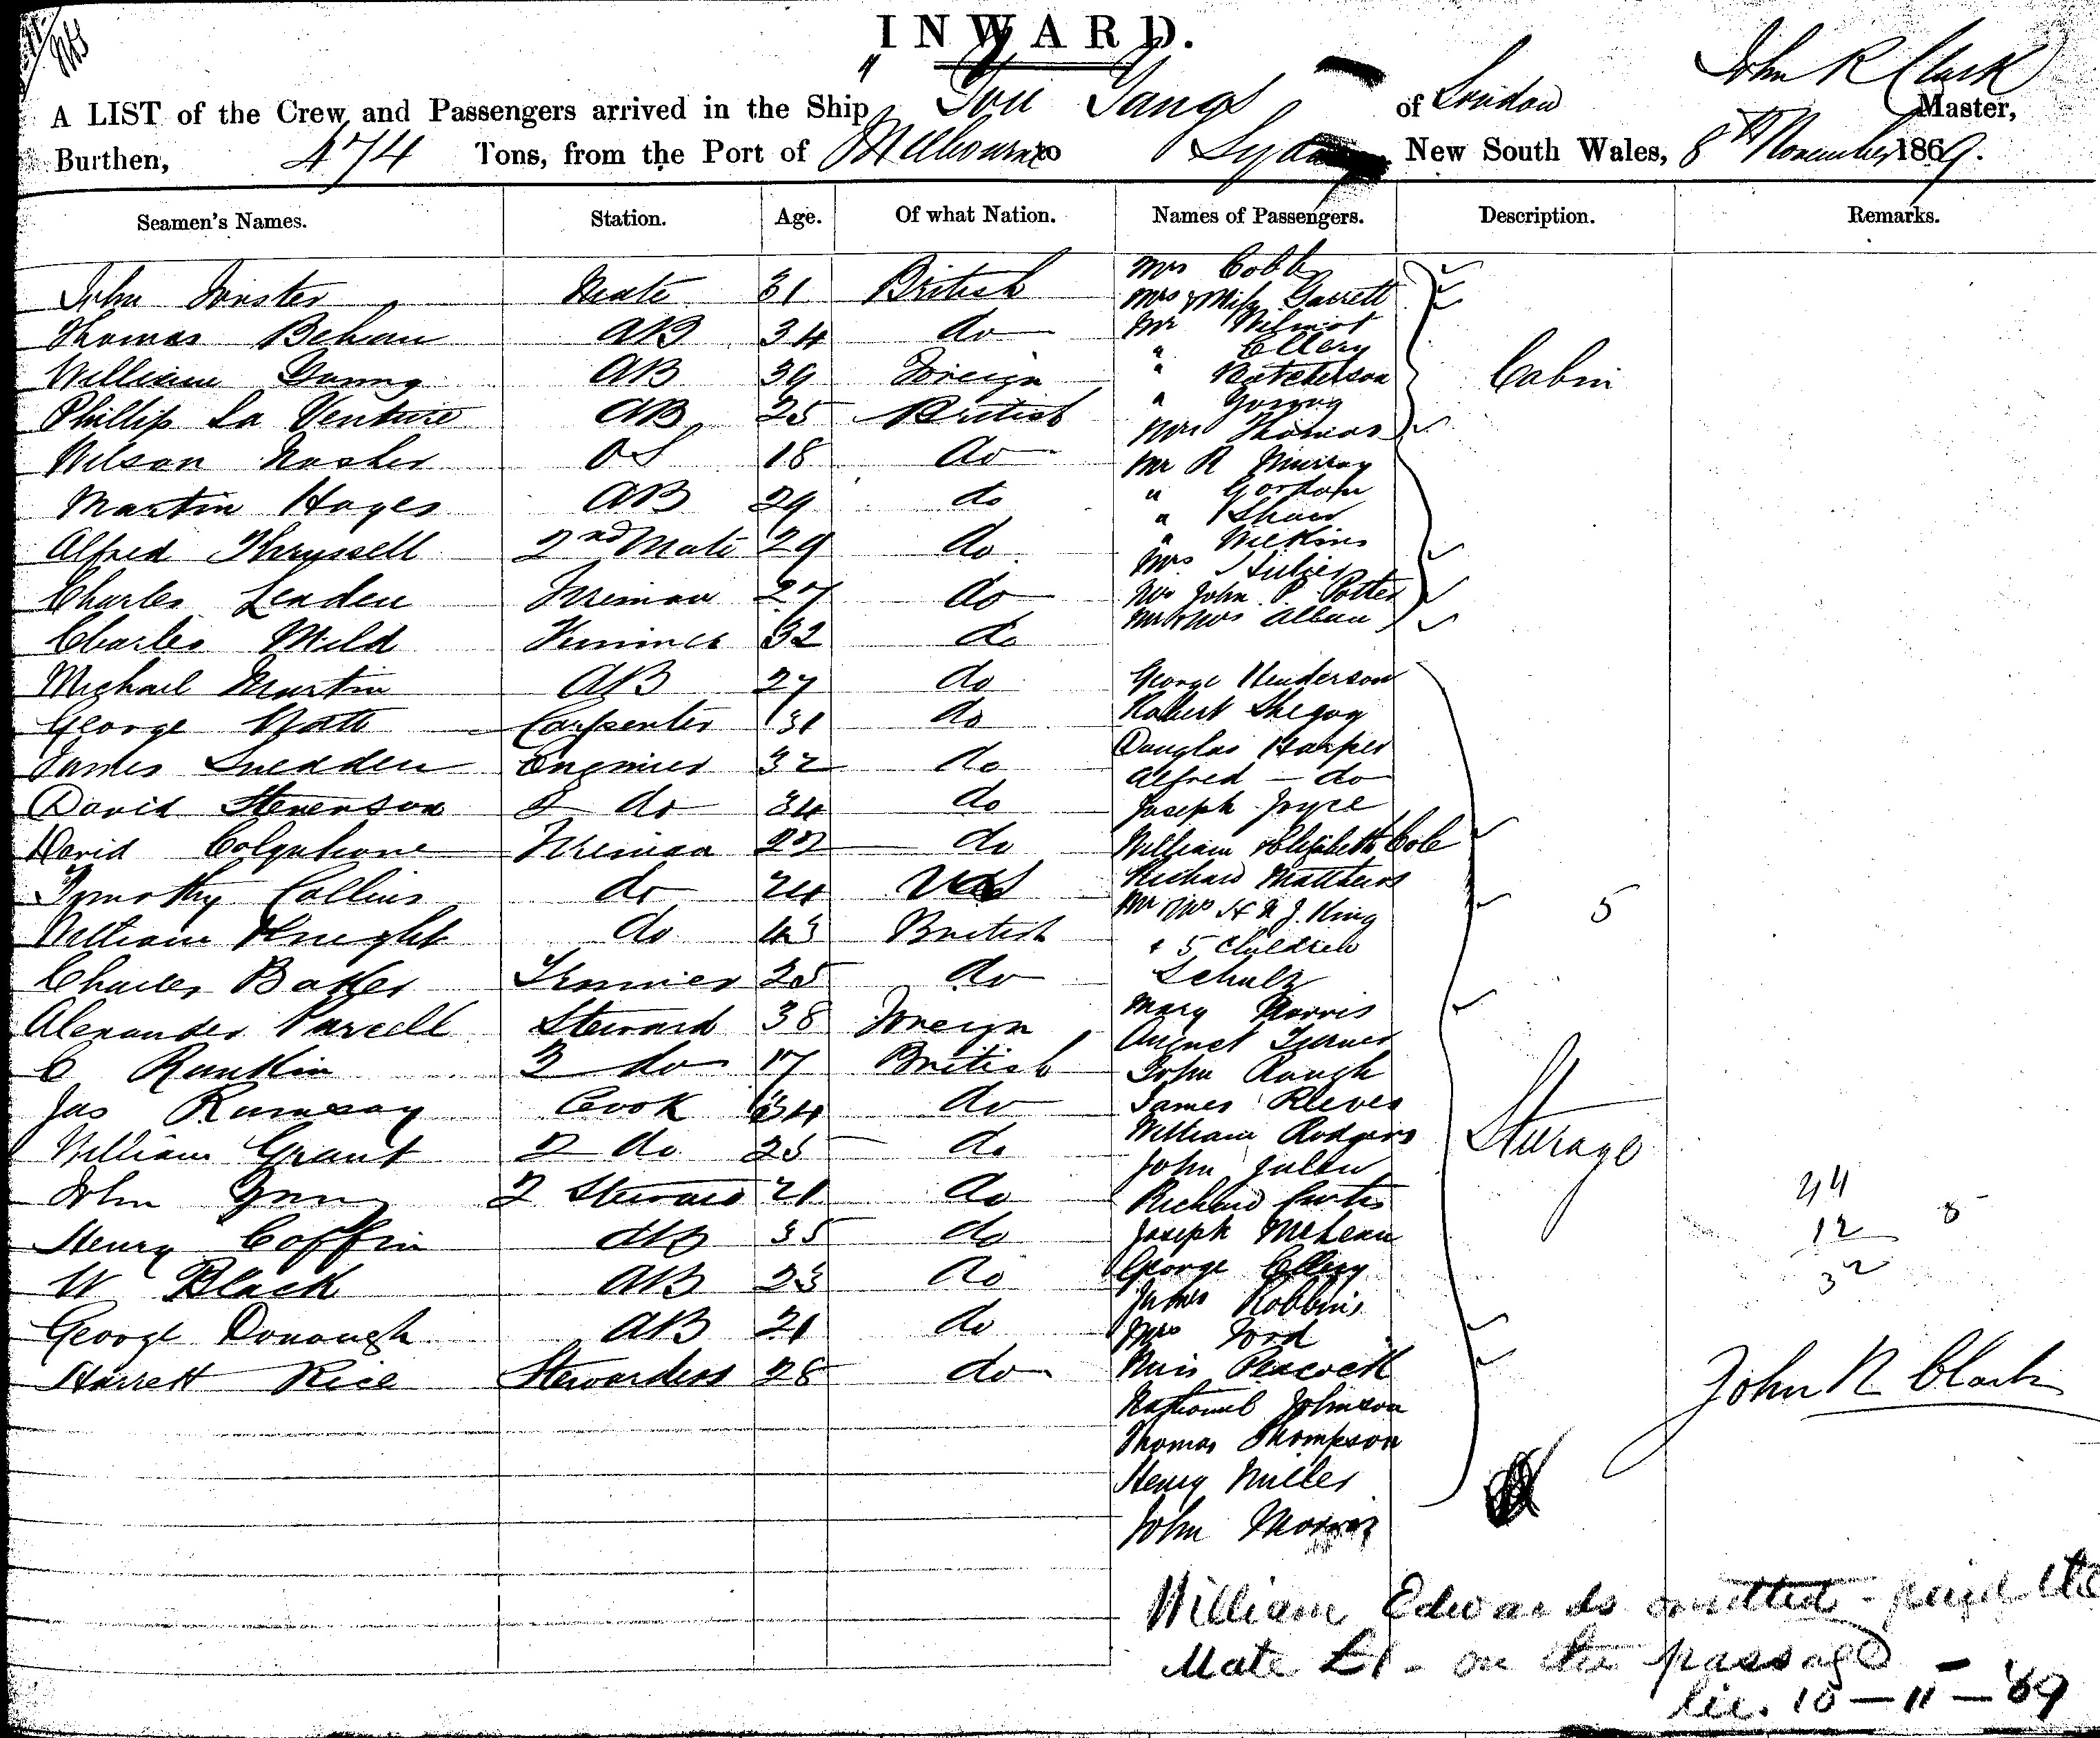 INWARD.
John R Clark
A LIST of the Crew and Passengers arrived in the Ship " You Yangs of London Master,
Burthen, 474 Tons, from the Port of Melbourne to Sydney New South Wales, 8th November 1869.
Seamen's Names. Station. Age. Of what Nation. Names of Passengers. Description. Remarks.
Mrs Cobb
John Mate 31 British Mrs & Miss Garrett
Thomas Behan AB 34 do Mr Wilmot
" Ellery
William Young AB 39 Foreign " Hutcherson Cabin
Phillip La Venture AB 25 British " Young
Mrs Thomas
Wilson OS 18 do Mr R Murray
Martin Hayes AB 29 do " Gordon
" Shaw
Alfred Thryssell 2nd Mate 29 do " Wilkins
Mrs
Charles Leaden Fireman 27 do John P. Potter
Charles Mild Trimmer 32 do Mr & Mrs Alban
Michael Martin AB 27 do George Henderson
George Carpenter 31 do Robert Shegog
James Snedden Engineer 32 do Douglas Harper
Alfred — do
David Stevenson 2 do 34 do Joseph Joyce
David Colquhoune Fireman 22 do William & Elizabeth Cole
Tymothy Collins do 24 US Richard Matthews
Mr & Mrs H N J. King 5
William Knight do 43 British & 5 Children
Charles Baker Trimmer 25 do Schulz
Alexander Purcell Steward 38 Foreign Mary Norris
August Turner
C Rankin 2 do 17 British John Rough
Jas Ramsay Cook 34 do James Reeves
William Grant 2 do 25 do William Rodgers Sturage
John Julen
John 2 Steward 21 do Richard Curtis
Henry Coffin AB 35 do Joseph McLean
W Black AB 23 do George Ellery
James Robbins
George Donough AB 21 do Mrs Ford
Harrett Rice Stewardess 28 do Miss Peacock
44
12
32
John R Clark
Johnson
Thomas Thompson
Henry Miller
John
William Edwards omitted - paid the
Mate £1 - on the passage
10 — 11 — 69